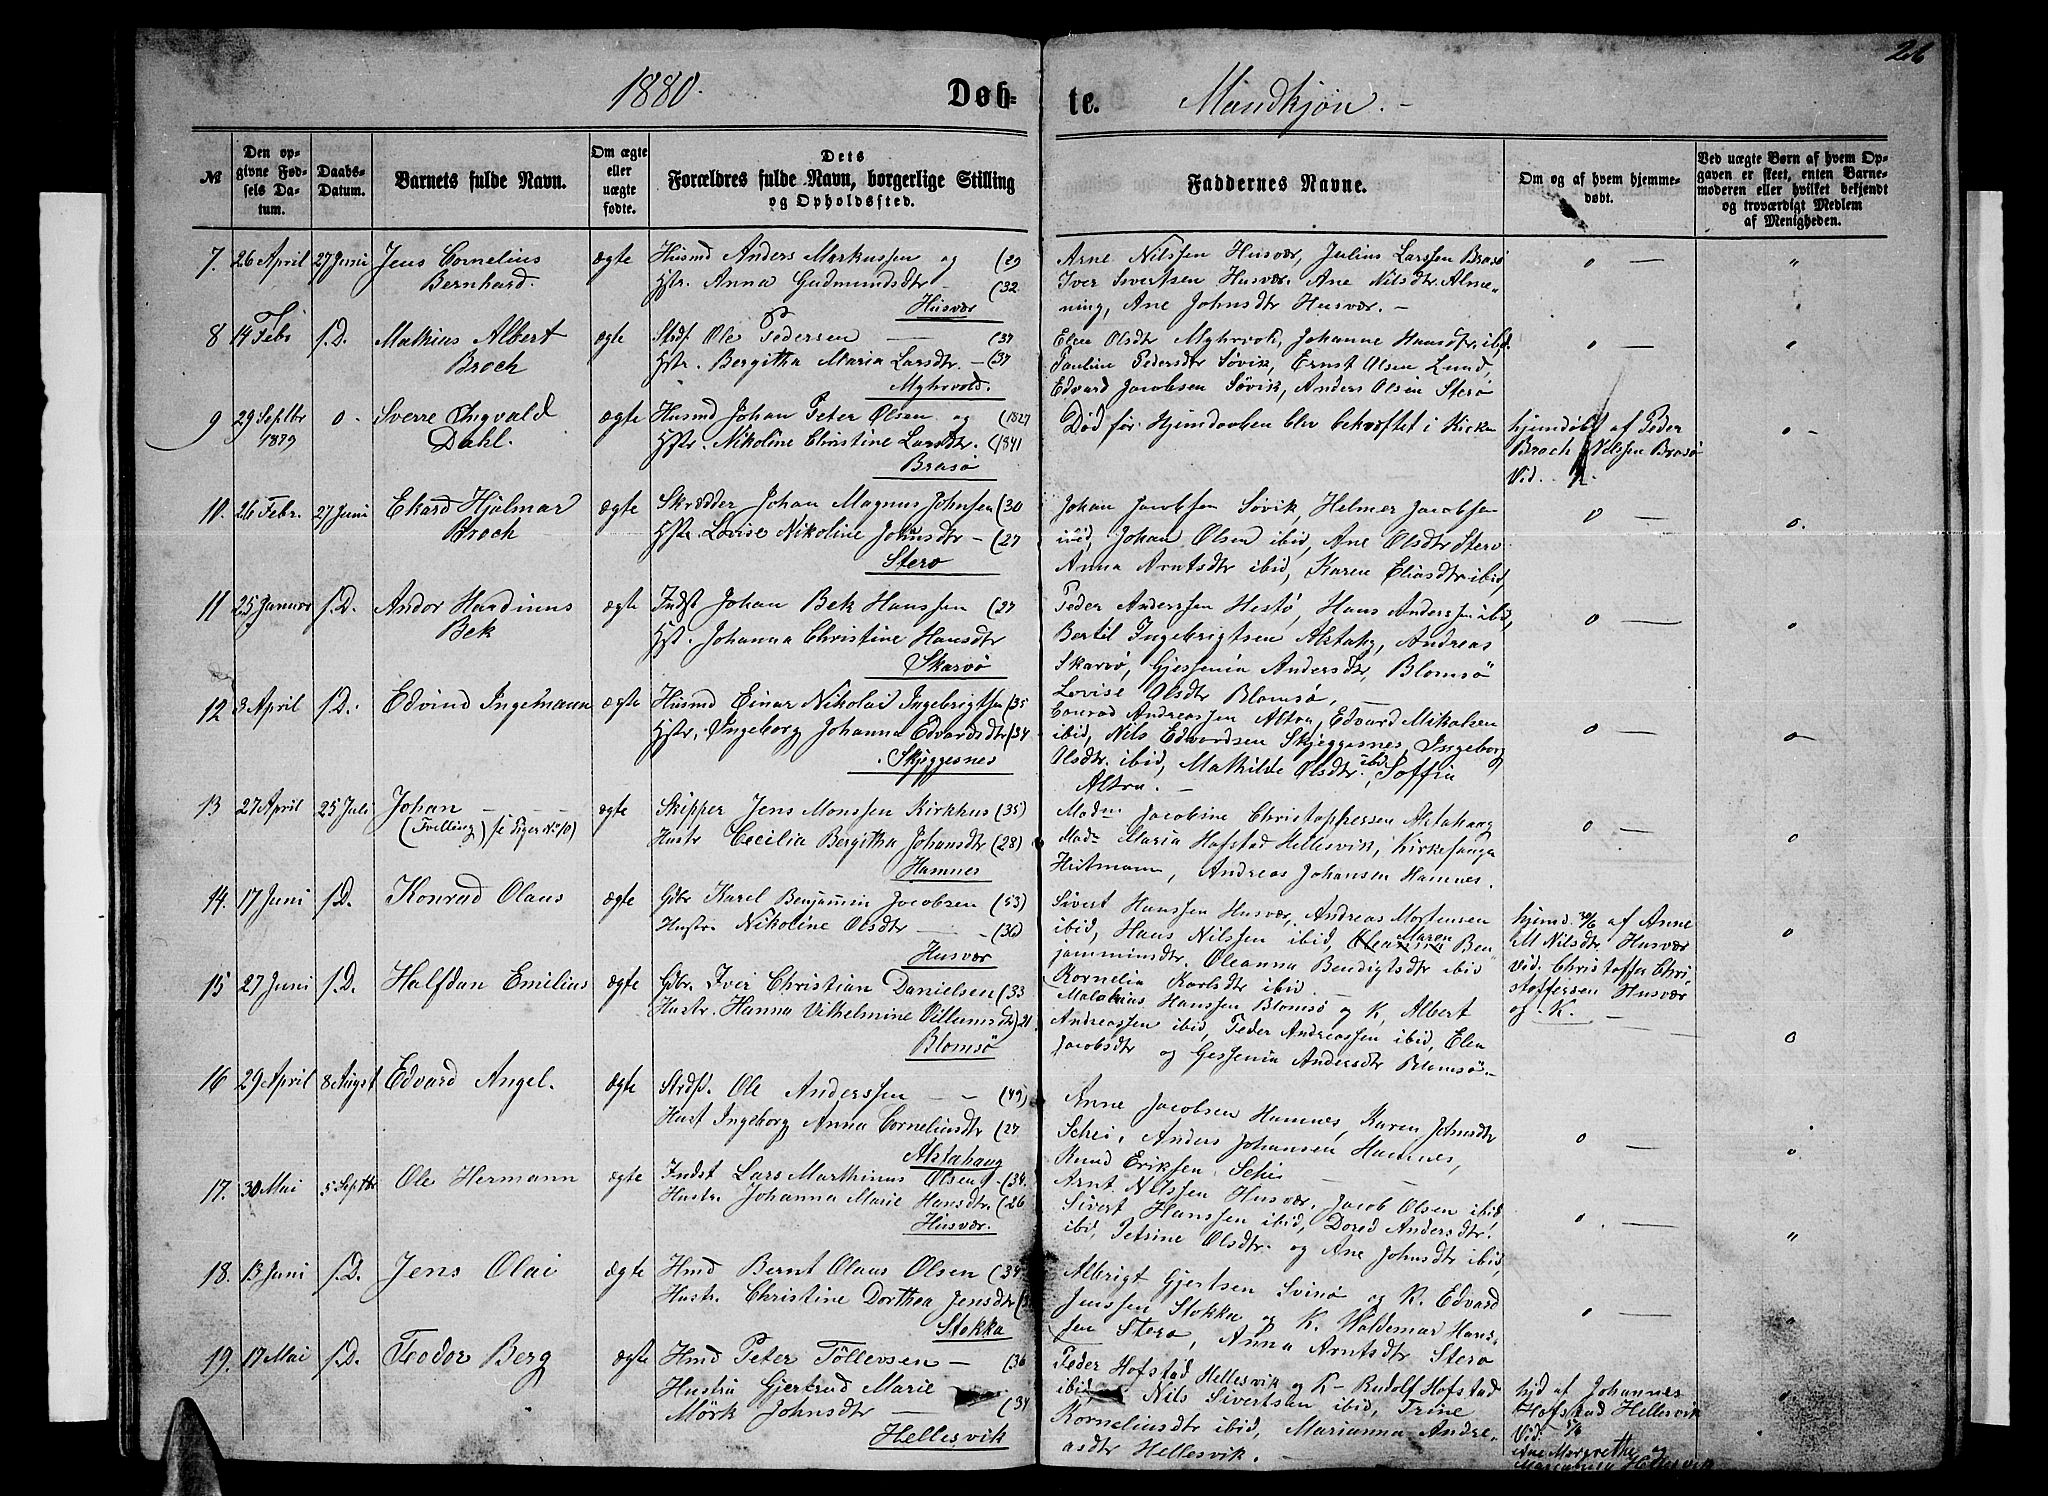 26
1880. Døb- te. Mandkjøn. -
№
Den op-
givne Fød-
sels Da-
tum.
Daabs-
Datum.
Barnets fulde Navn.
Om ægte
eller
uægte
fødte.
Dets
Forældres fulde Navn, borgerlige Stilling
og Opholdssted.
Faddernes Navne.
Om og af hvem hjemme-
døbt.
Ved uægte Børn af hvem Op-
gaven er skeet, enten Barne-
moderen eller hvilket bekjendt
og troværdigt Medlem
af Menigheden.
7. 26 April 27 Juni Jens Cornelius
Bernhard.
ægte
Husmd Anders Markussen og (29
Hstr. Anna Gudmundsdtr - (32
Husvær
Arne Nilssen Husvær, Julius Larssen Brasø
Iver Sivertsen Husvær. Ane Nilsdtr. Alme-
ning, Ane Johnsdtr Husvær. -
0 —
8 14 Feb. s.D. Mathias Albert
Broch
ægte
Strdf. Ole Pedersen (37
Hstr. Bergitha Maria Larsdtr. - (37
Myhrvold.
Elen Olsdtr Myhrvold, Johanne Hansdtr. ibd.
Pauline Pedersdtr Søvik, Ernst Olsen Lund,
Edvard Jacobsen Søvik, Anders Olsen Sterø
0 —
0
9 29 Septbr
1879
0. Sverre Ingvald
Dahl.
ægte
Husmd Johan Peter Olsen og (1827
Hstr. Nikoline Christine Larsdtr. (1841
Brasø
Død før Hjemdaaben blev bekræftet i Kirken
hjemdøbt af Peder
Broch Nilssen Brasø
Vid.
0 -
10. 26 Febr. 27 Juni Ekard Hjalmar
Broch
ægte
Skrædder Johan Magnus Johnsen (30
Hstr. Lovise Nikoline Johnsdtr - (27
Sterø
Johan Jacobsen Søvik, Helmer Jacobsen
ibid, Johan Olsen ibid, Ane Olsdtr Sterø
Anna Arntsdtr ibid, Karen Eliasdtr ibid,
0 —
0.
11 25 Januar s.D. Andor Hardinus
Bek
ægte
Indst Johan Bek Hanssen (27
Hst. Johanna Christine Hansdtr
Skarvø
Peder Anderssen Hestø, Hans Anderssen ibid,
Bertil Ingebrigtsen Alstahg, Andreas
Skarvø, Gjessenia Andersdtr, Blomsö
Lovise Olsdtr Blomsø, —
0 —
0
12 3 April s.D. Edvind Ingelmann
ægte
Husmd Einar Nikolai Ingebrigtsen (35
Hstr. Ingeborg Johanna Edvardsdtr (34
Skjeggesnes
Conrad Andreassen Altra, Edvard Mikalsen
ibid, Nils Edvardsen Skjeggesnes, Ingeborg
Olsdtr. ibid, Mathilde Olsdtr. ibid, Soffia
Altra. -
0 —
0
13 27 April 25 Juli Johan - - -
(Tvilling) se Piger No 10)
ægte
Skipper Jens Monssen Kirkhus (35)
Hustr Cecilia Bergitha Johansdtr (28)
Hamnes
Madm Jacobine Christophersen Alstahaug
Madm Maria Hofstad Hellesvik, Kirkesanger
Heitmann, Andreas Johansen Hamnes.
0 —
0
14. 17 Juni s.D. Konrad Olaus
ægte
Gdbr Karel Benjamin Jacobsen (53)
Hustr. Nikoline Olsdtr - (36)
Husvær
Sivert Hanssen Husvær, Andreas Mortensen
ibid, Hans Nilssen ibid, Maren Ben-
jaminsdtr. Oleanna Bendigtsdtr ibid
Kornelia Karlsdtr ibid
hjemd. 20/6 af Anne
M Nilsdtr. Husvær
Vid. Christoffer Chri-
stoffersen Husvær
og K.
0
15 27 Juni s.D. Halfdan Emilius
ægte
Gdbr. Iver Christian Danielsen (33
Hustr. Hanna Vilhelmine Villumsdtr) 21
Blomsö
Malakias Hanssen Blomsø og K, Albert
Andreassen ibid, Peder Andreassen ibid, Elen
Jacobsdtr og Gessenia Andersdtr Blomsø -
0
16 29 April 8 August Edvard Angel.
ægte
Strdf. Ole Anderssen - - (49)
Hust Ingeborg Anna Corneliusdtr (27
Alstahaug
Anne Jacobsen Hamnes, Karen Johnsdtr
Schei, Anders Johansen Hamnes,
Knud Eriksen Schei
0 —
0
17. 30 Mai 5 Septbr Ole Hermann
ægte
Indst Lars Marthinus Olsen (34.
Hustr. Johanna Marie Hansdtr. (26
Husvær.
Arnt Nilssen Husvær, Jacob Olsen ibid,
Sivert Hanssen ibid, Dored Andersdtr.
ibid, Petrine Olsdtr. og Ane Johnsdtr ibid,
0 —
18. 13 Juni s.D. Jens Olai
ægte
Hmd Bernt Olaus Olsen (34
Hustr. Christine Dorthea Jensdtr
Stokka
Albrigt Gjertsen Svinø og K. Edvard
Jenssen Stokka og K. Valdemar Hans-
sen Sterø, Anna Arntsdtr. Sterø
19. 17 Mai s.D. Teodor Berg
ægte
Hmd Peter Töllevsen - (36
Hustru Gjertrud Marie
Mörk Johnsdtr - (34
Hellesvik
Peder Hofstad Hellesvik og K - Rudolf Hofstad
ibid Nils Sivertsen ibid, Trine
Korneliusdtr ibid, Marianna Andre-
asdtr Hellesvik. -
hjd af Johannes
Hofstad Hellesvik
Vid.
Ane Margrethe og
Hellesvik